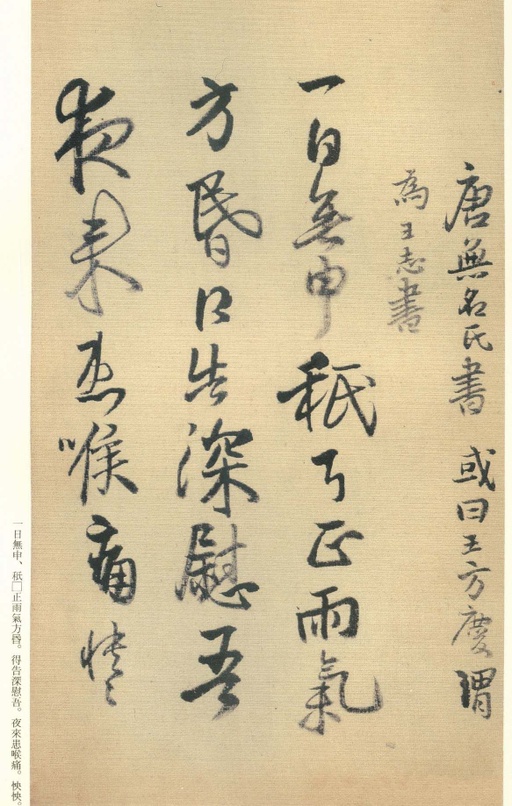 唐無名氏書 或曰王方慶謂
為王志書
一日無申秪正雨氣
方昏得告深慰吾
夜来患喉痛怏々
一日無申、秖□止雨氣方昏。得告深慰吾。夜來患喉痛。怏怏。